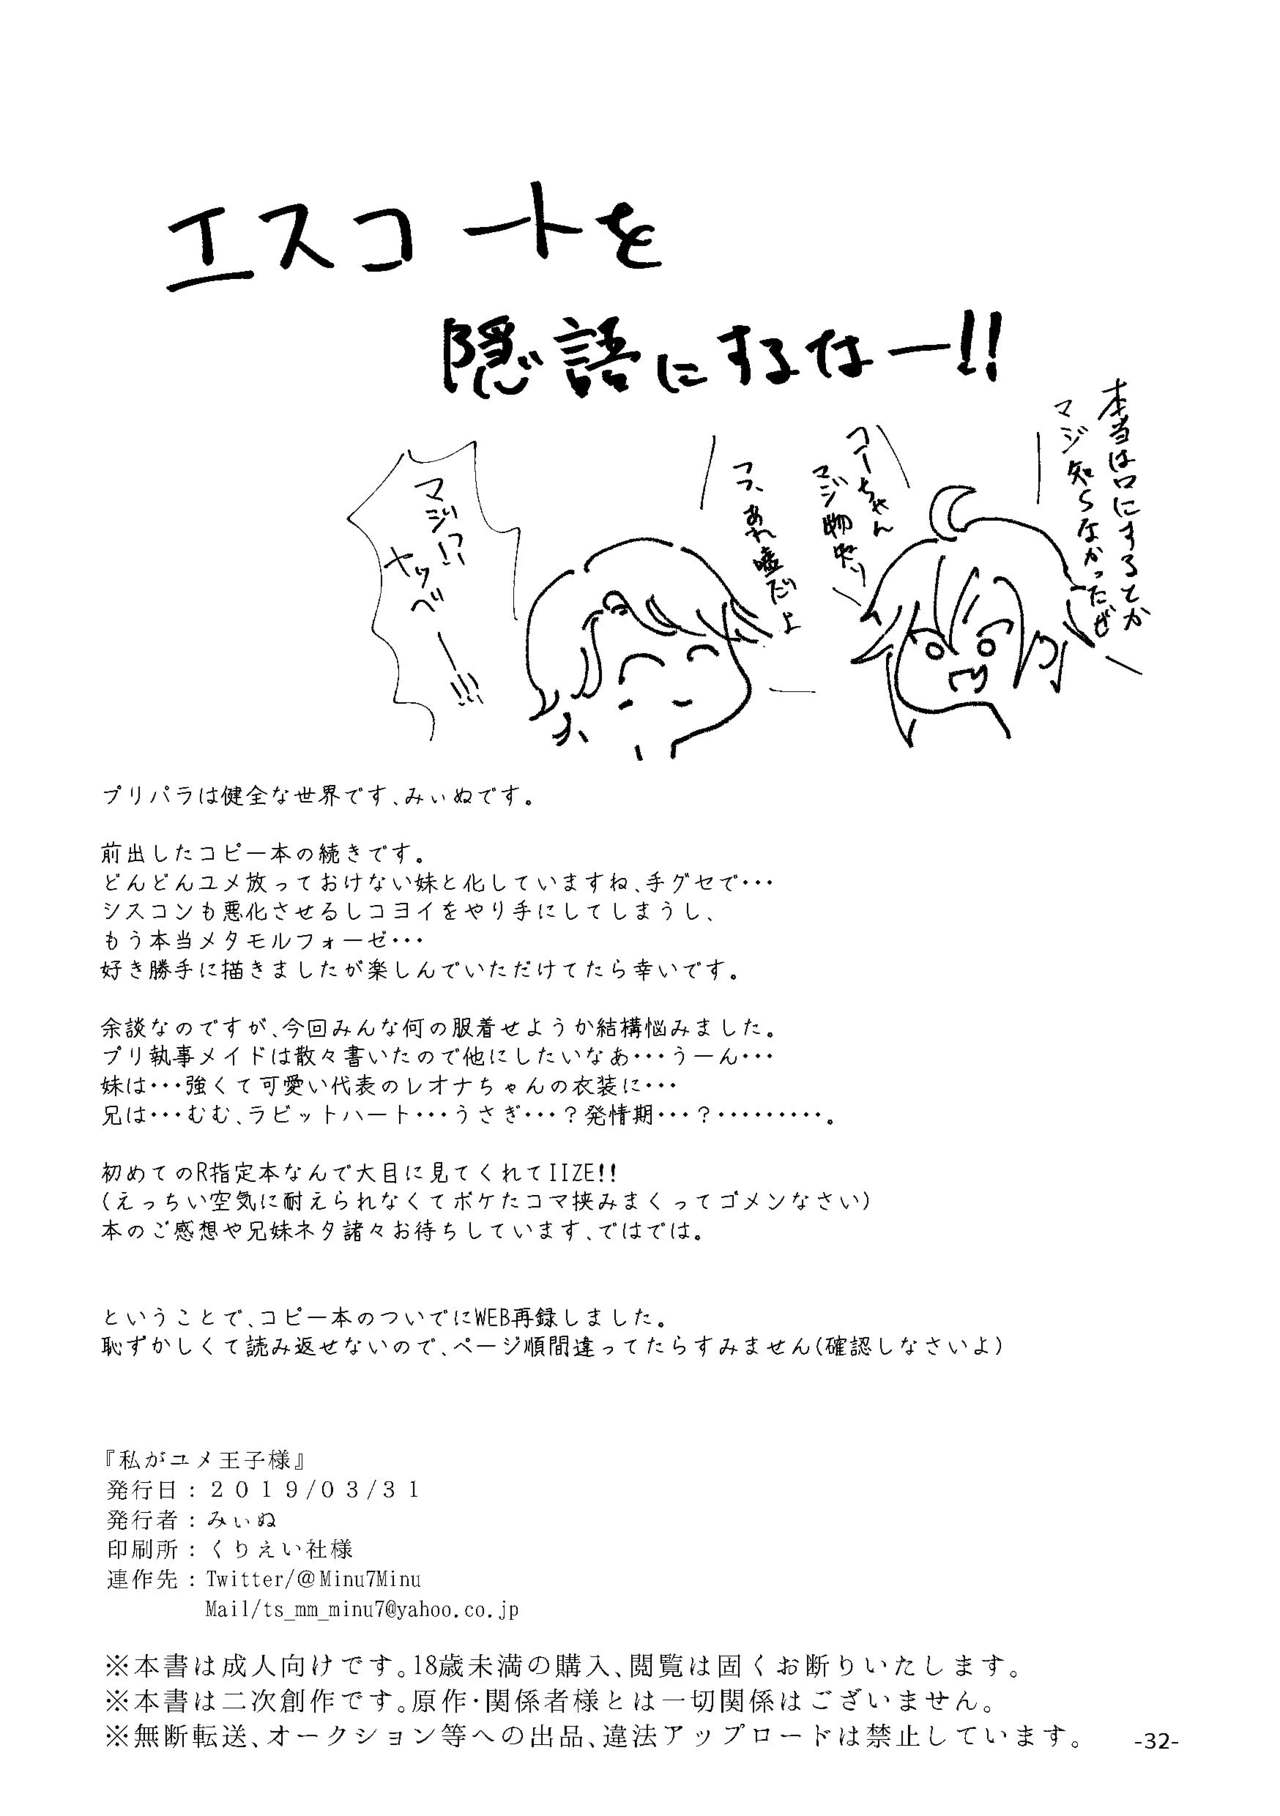 エスコートを
隠語にするなー!!
本当は口にするとか
マジ知らなかったぜ
コーちゃん
マジ物知り
フフ、あれ嘘だよ
マジっ!?
ヤッベー!!!
プリパラは健全な世界です、みぃぬです。
前出したコピー本の続きです。
どんどんユメ放っておけない妹と化していますね、手グセで・・・
シスコンも悪化させるしコヨイをやり手にしてしまうし、
もう本当メタモルフォーゼ・・・
好き勝手に描きましたが楽しんでいただけてたら幸いです。
余談なのですが、今回みんな何の服着せようか結構悩みました。
プリ執事メイドは散々書いたので他にしたいなあ・・・うーん・・・
妹は・・・強くて可愛い代表のレオナちゃんの衣装に・・・
兄は・・・むむ、ラビットハート・・・うさぎ・・・？発情期・・・？・・・・・・・・・。
初めてのR指定本なんで大目に見てくれてIIZE!!
(えっちい空気に耐えられなくてボケたコマ挟みまくってゴメンなさい)
本のご感想や兄妹ネタ諸々お待ちしています、ではでは。
ということで、コピー本のついでにWEB再録しました。
恥ずかしくて読み返せないので、ページ順間違ってたらすみません(確認しなさいよ)
『私がユメ王子様』
発行日：２０１９/０３/３１
発行者：みぃぬ
印刷所：くりえい社様
連作先：Twitter/@Minu7Minu
Mail/ts_mm_minu7@yahoo.co.jp
※本書は成人向けです。18歳未満の購入、閲覧は固くお断りいたします。
※本書は二次創作です。原作・関係者様とは一切関係はございません。
※無断転送、オークション等への出品、違法アップロードは禁止しています。
-32-